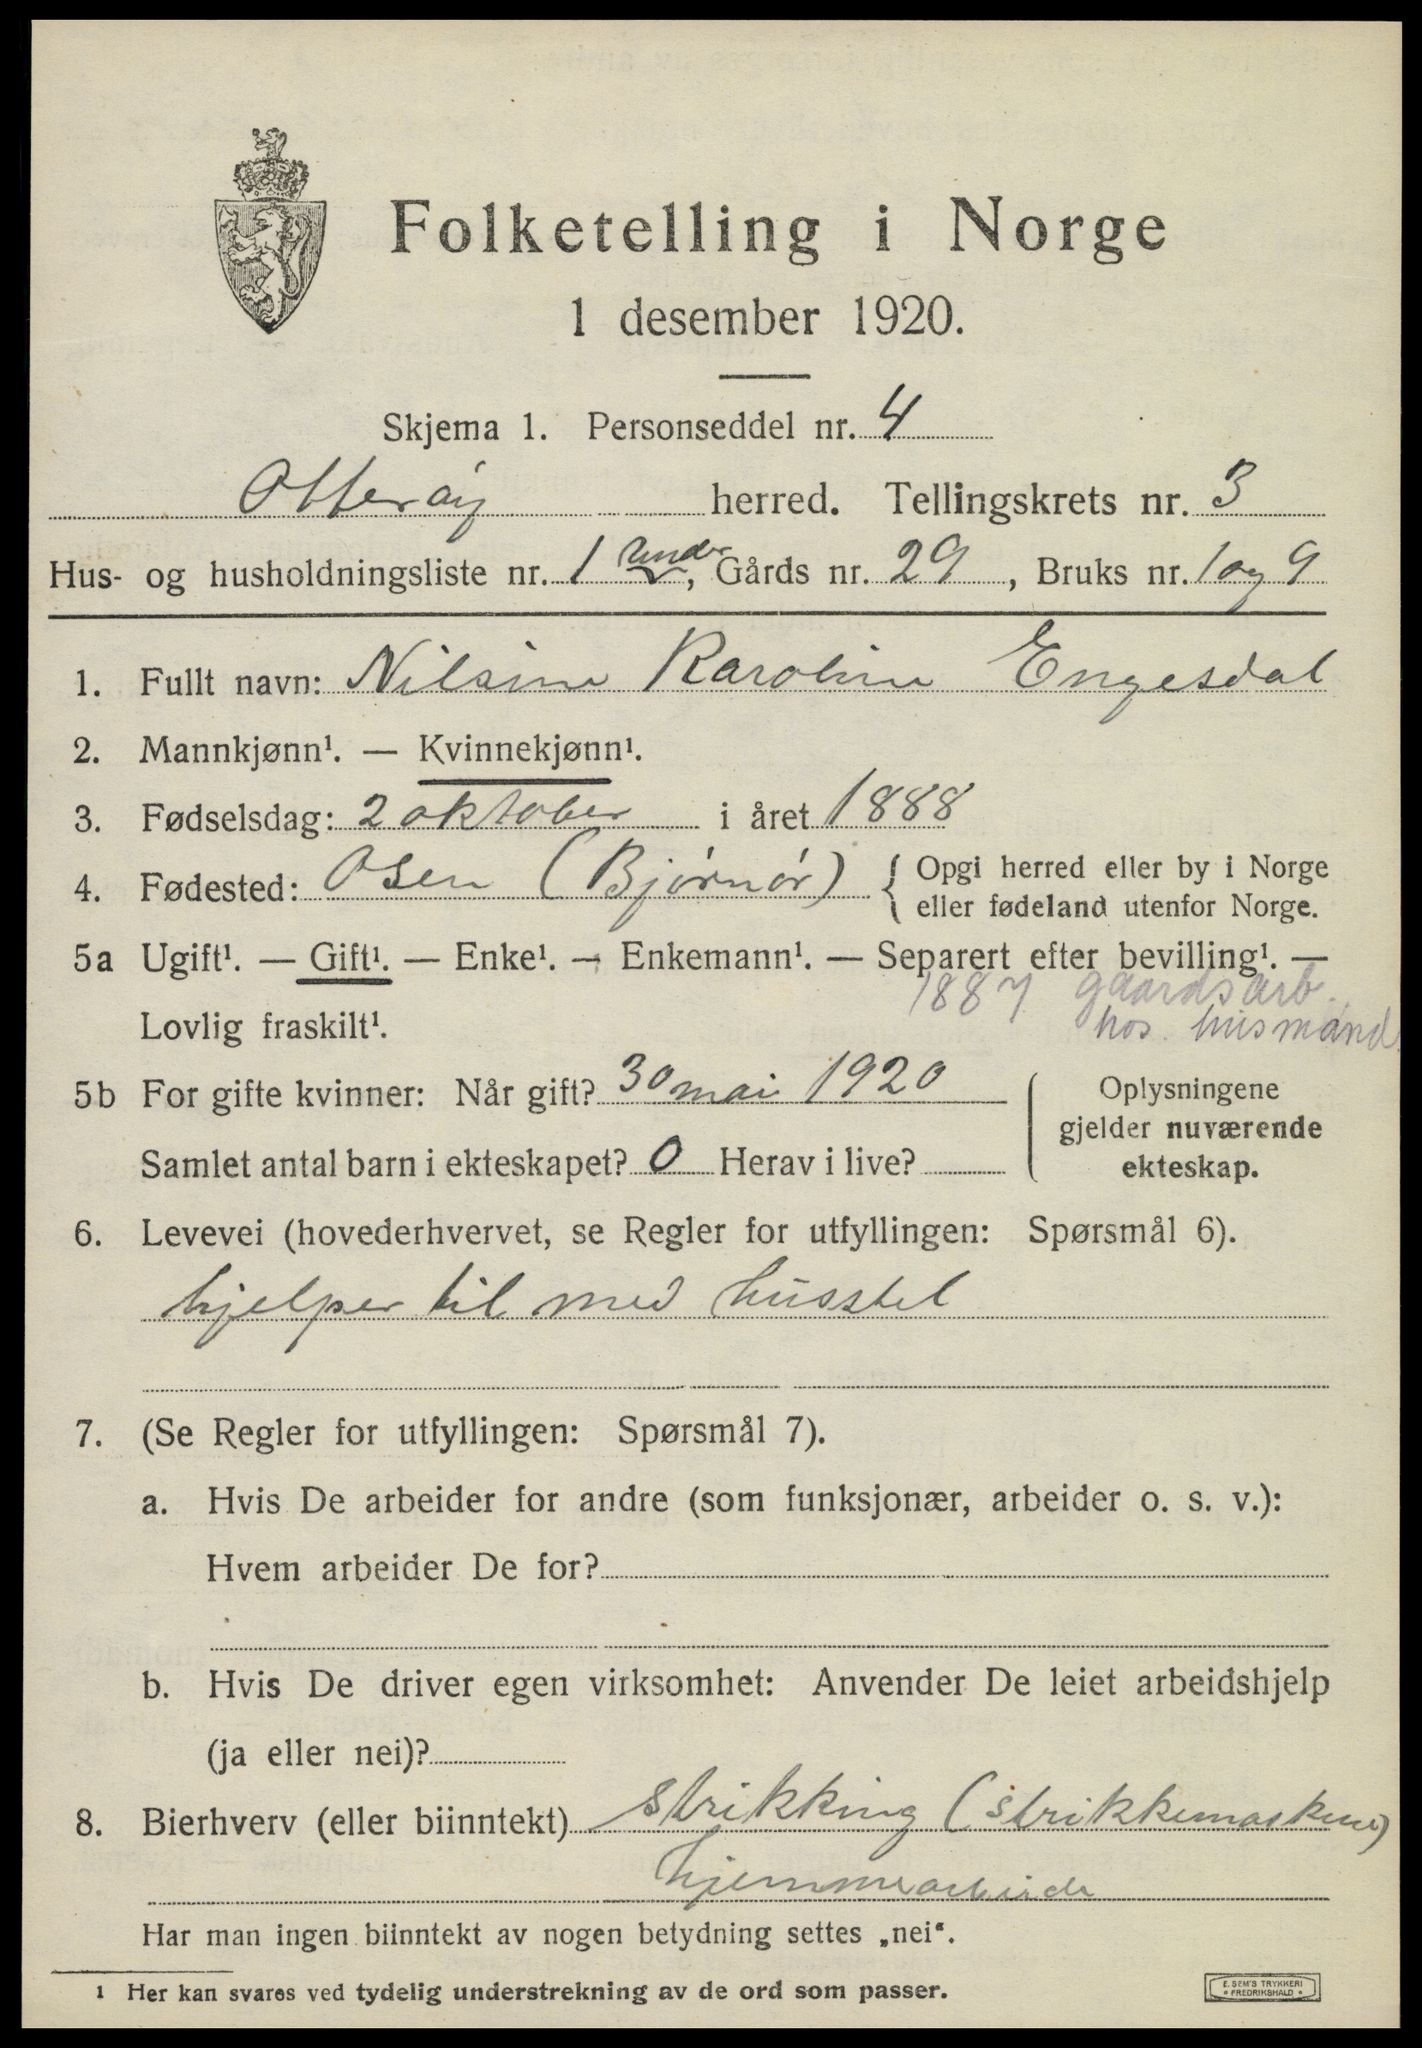 Folketelling i Norge
1 desember 1920.
Skjema 1. Personseddel nr. 4
Otterøy herred. Tellingskrets nr. 3
Hus- og husholdningsliste nr. 1 under, Gårds nr. 29, Bruks nr. 1 og 9
1. Fullt navn: Nilsine Karoline Engesdal
2. Mannkjønn¹. — Kvinnekjønn¹.
3. Fødselsdag: 2 oktober i året 1888
4. Fødested: Osen (Bjørnør) { Opgi herred eller by i Norge
eller fødeland utenfor Norge.
5a Ugift¹. — Gift¹. — Enke¹. — Enkemann¹. — Separert efter bevilling¹. —
1887 gaardsarb.
Lovlig fraskilt¹. hos husmand
5b For gifte kvinner: Når gift? 30 mai 1920
Samlet antal barn i ekteskapet? 0 Herav i live?
Oplysningene
gjelder nuværende
ekteskap.
6. Levevei (hovederhvervet, se Regler for utfyllingen: Spørsmål 6).
hjelper til med husstel
7. (Se Regler for utfyllingen: Spørsmål 7).
a. Hvis De arbeider for andre (som funksjonær, arbeider o. s. v.):
Hvem arbeider De for?
b. Hvis De driver egen virksomhet: Anvender De leiet arbeidshjelp
(ja eller nei)?
8. Bierhverv (eller biinntekt) strikking (strikkemaskine)
hjemmearbeide
Har man ingen biinntekt av nogen betydning settes „nei“.
1 Her kan svares ved tydelig understrekning av de ord som passer.
E. SEM'S TRYKKERI
FREDRIKSHALD